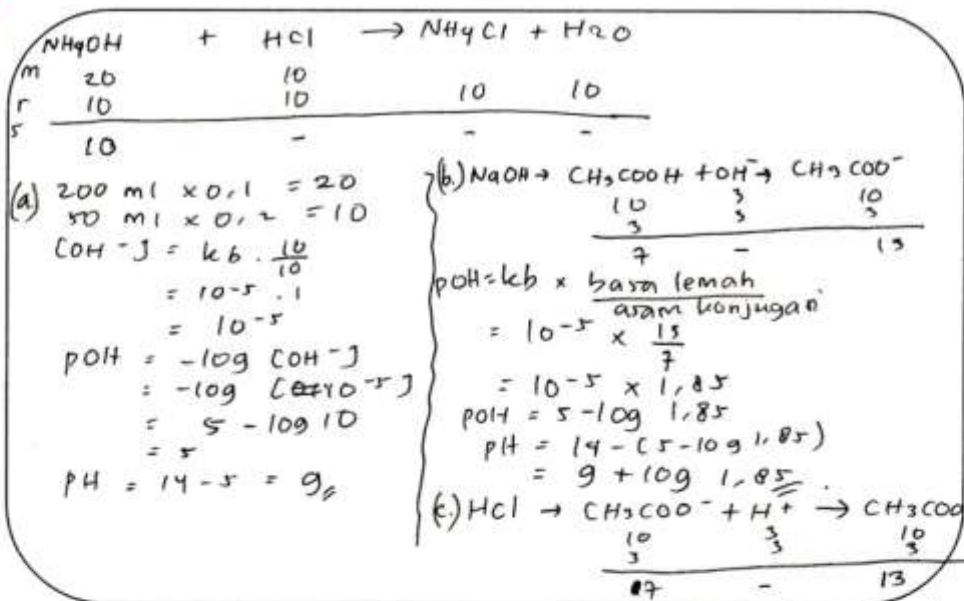 NH4OH + HCl → NH4Cl + H2O
m 20 10
r 10 10 10 10
s 10 - - -
(a) 200 ml x 0,1 = 20
50 ml x 0,2 = 10
[OH-] = kb . 10/10
= 10-5 . 1
= 10-5
pOH = -log [OH-]
= -log [10-5]
= 5 - log 10
= 5
pH = 14 - 5 = 9
(b.) NaOH → CH3COOH + OH- → CH3COO-
10 3 10
3 3 3
7 - 13
pOH = kb x basa lemah / asam konjugasi
= 10-5 x 13/7
= 10-5 x 1,85
pOH = 5 - log 1,85
pH = 14 - (5 - log 1,85)
= 9 + log 1,85
(c.) HCl → CH3COO- + H+ → CH3COO
10 3 10
3 3 3
7 - 13